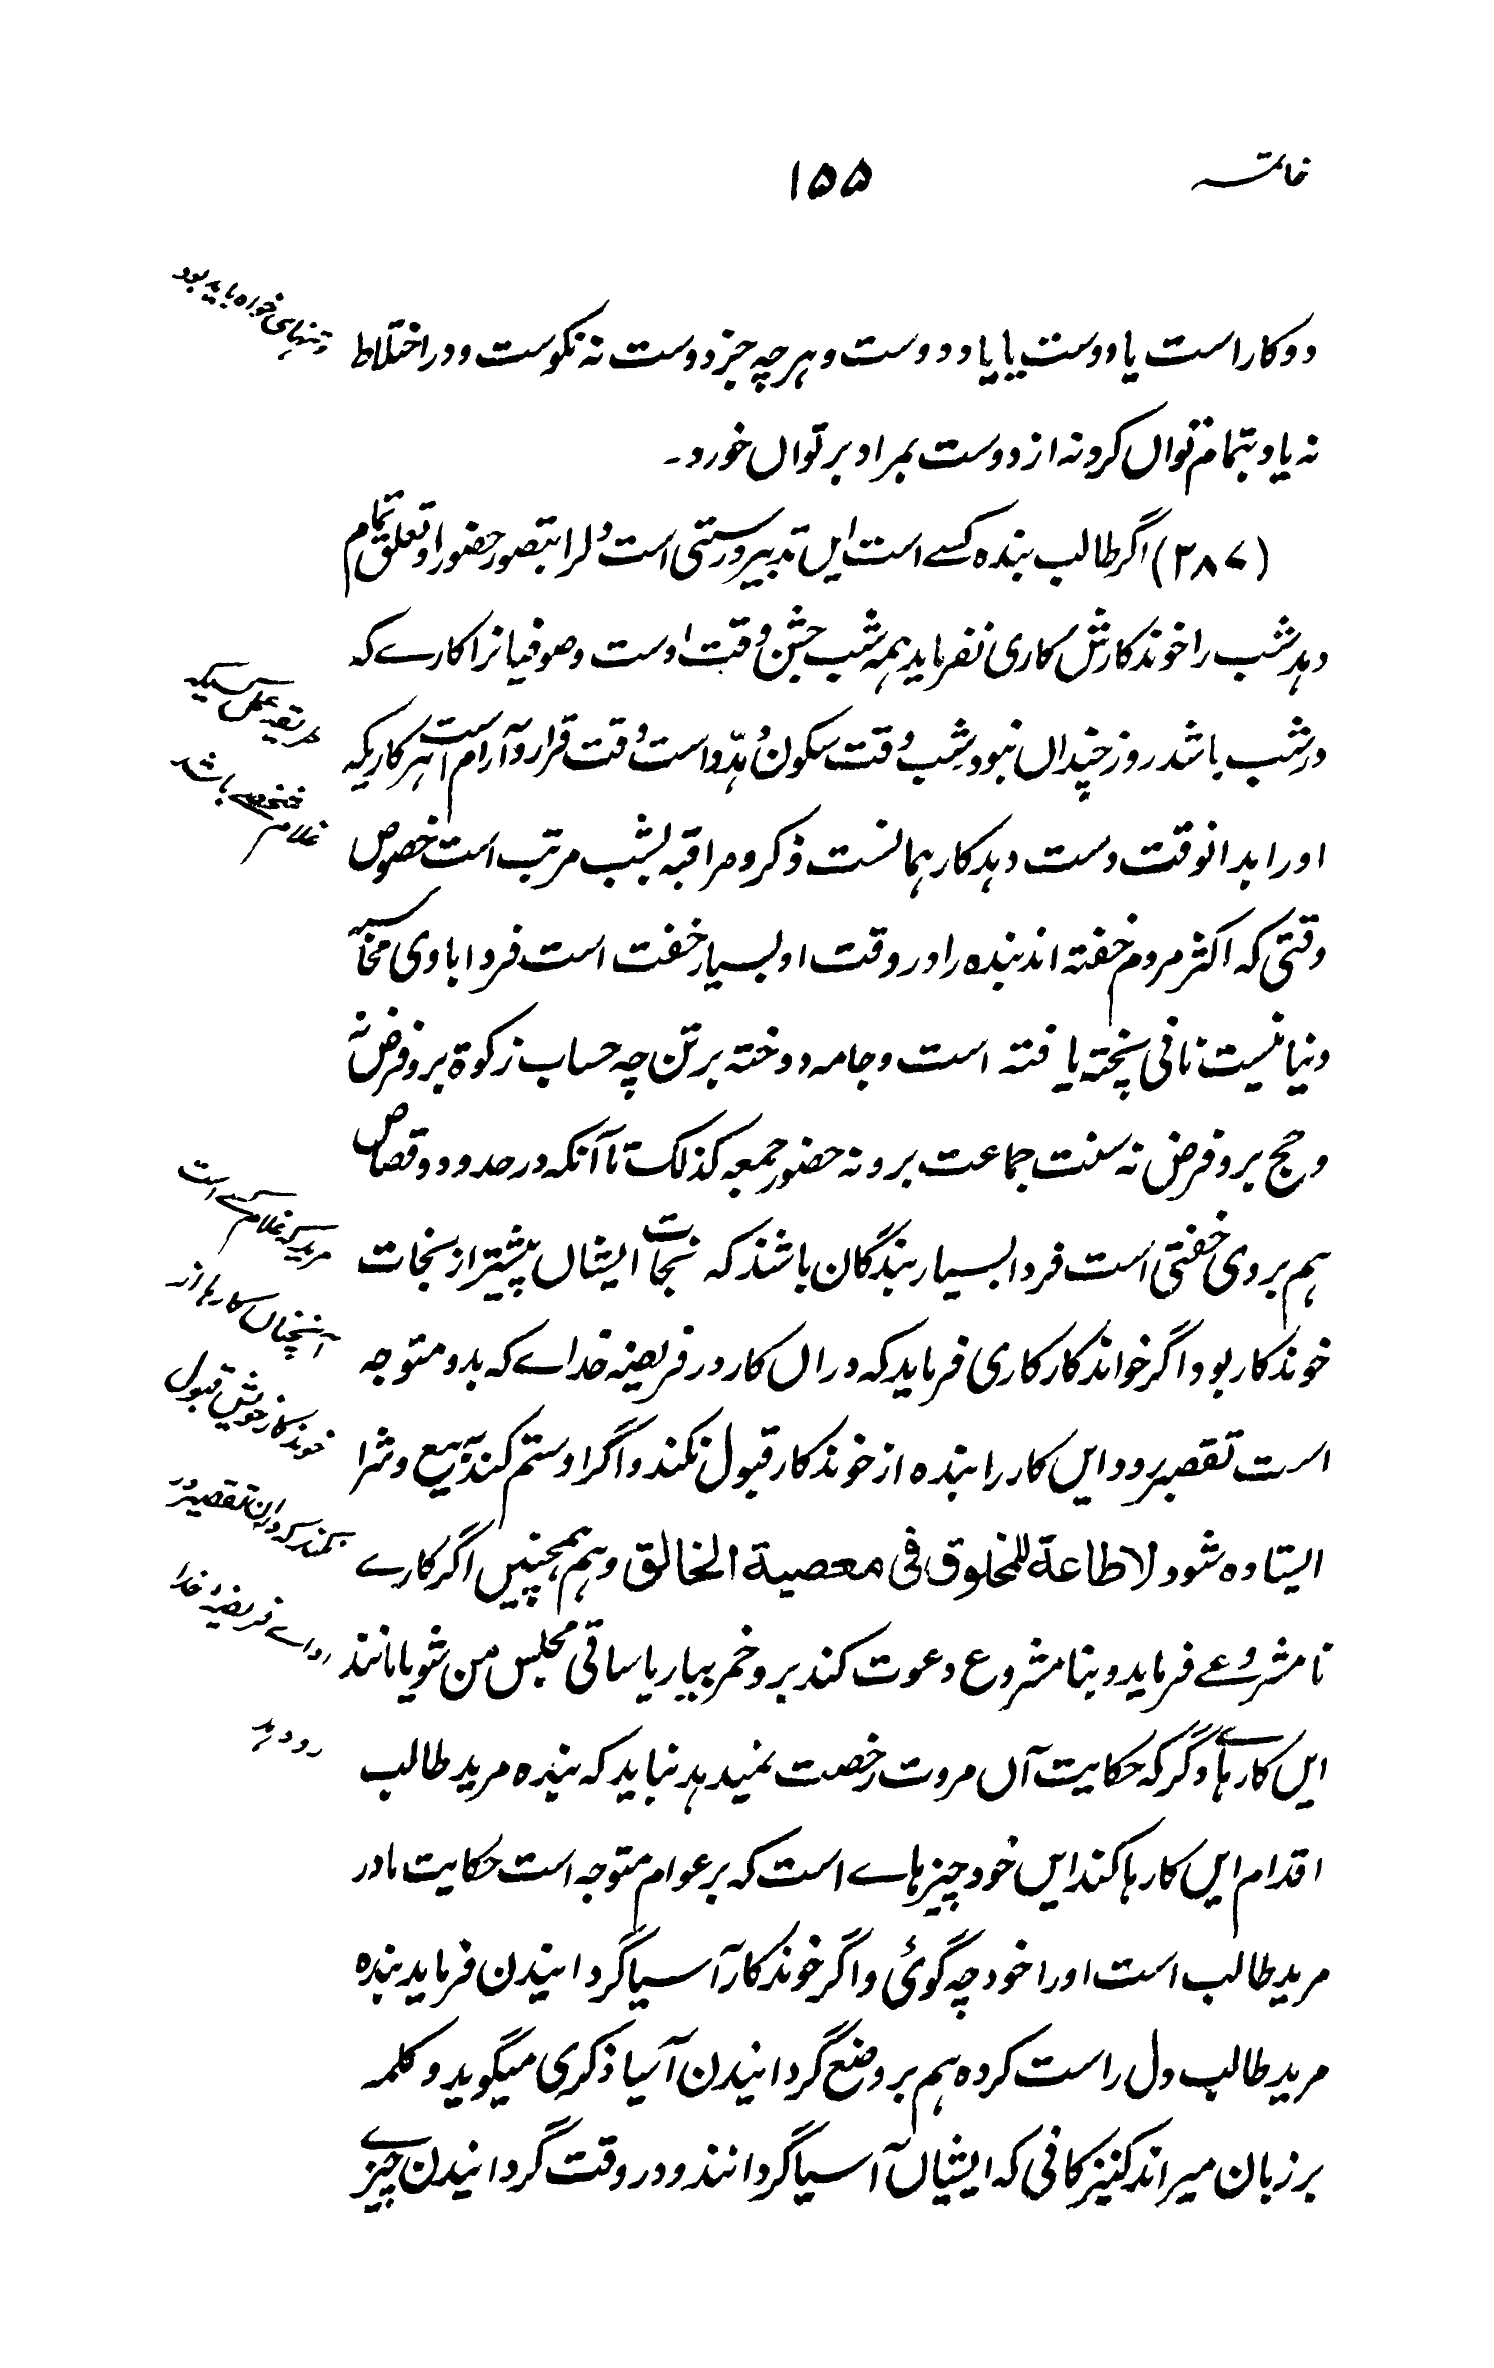 خاتمہ
۱۵۵
دو کار است یا دوست یا یاد دوست و هر چه جز دوست نه نکوست و در اختلاط
نه یاد بتمام توان کرد نه از دوست بمراد بر توان خورد۔
(۳۸۷) اگر طالب بنده کسے است ایں تدبیر درستی است دلرا بتصور حضور او تعلق تمام
دہد شب را خوندکارش کاری نفرماید ہمہ شب جشن وقت اوست و صوفیانرا کارے کہ
در شب باشد روز چندان نبود شب وقت سکون و ہدو است وقت قرار و آرام است ہر کاریکہ
او را بدانوقت دست دہد کار ہمانست ذکر و مراقبہ بشب مرتب است خصوص
وقتی کہ اکثر مردم خفتہ اند بندہ را در وقت او بسیار خفت است فردا با وی محاسبہ
دنیا نیست نانی پختہ یافتہ است و جامہ دوختہ بر تن چہ حساب زکوة برو فرض نہ
و حج برو فرض نہ سنت جماعت برو نہ حضور جمعہ کذلک تا آنکہ در حدود و قصاص
ہم بر وی خفتی است فردا بسیار بندگان باشند کہ نجات ایشاں پیشتر از نجات
خوندکار بود اگر خواندکار کاری فرماید کہ دراں کار در فریضۂ خداے کہ بدو متوجہ
است تقصیر رود ایں کار را بندہ از خوندکار قبول نکند و اگر او ستم کند بہ بیع و شرا
ایستادہ شود لا طاعة للمخلوق فی معصیة الخالق و ہم ہمچنیں اگر کارے
نامشروعے فرماید و بنا مشروع دعوت کند برو خمر بیار یا ساقی مجلس من شو یا مانند
ایں کارہاے وگر کہ حکایت آں مروت رخصت نمیدہد نباید کہ بندہ مرید طالب
اقدام ایں کارہا کند ایں خود چیزہاے است کہ بر عوام متوجہ است حکایت مادر
مرید طالب است او را خود چہ گوئی و اگر خوندکار آسیا گردانیدن فرماید بندہ
مرید طالب دل راست کردہ ہم بر وضع گردانیدن آسیا ذکری میگوید و کلمہ
بر زبان میراند کنیزکانی کہ ایشاں آسیا گردانند و در وقت گردانیدن چیزے
و تنہای خواہ باید بود
طریقہ عمل کسیکہ
غلام شخصے باشد
مرید کہ غلام کسے است
آنچناں کارہا از
خوندکار خویش قبول
نکند کہ دران تقصیر در
اداے فریضہ خدا
رو دہد